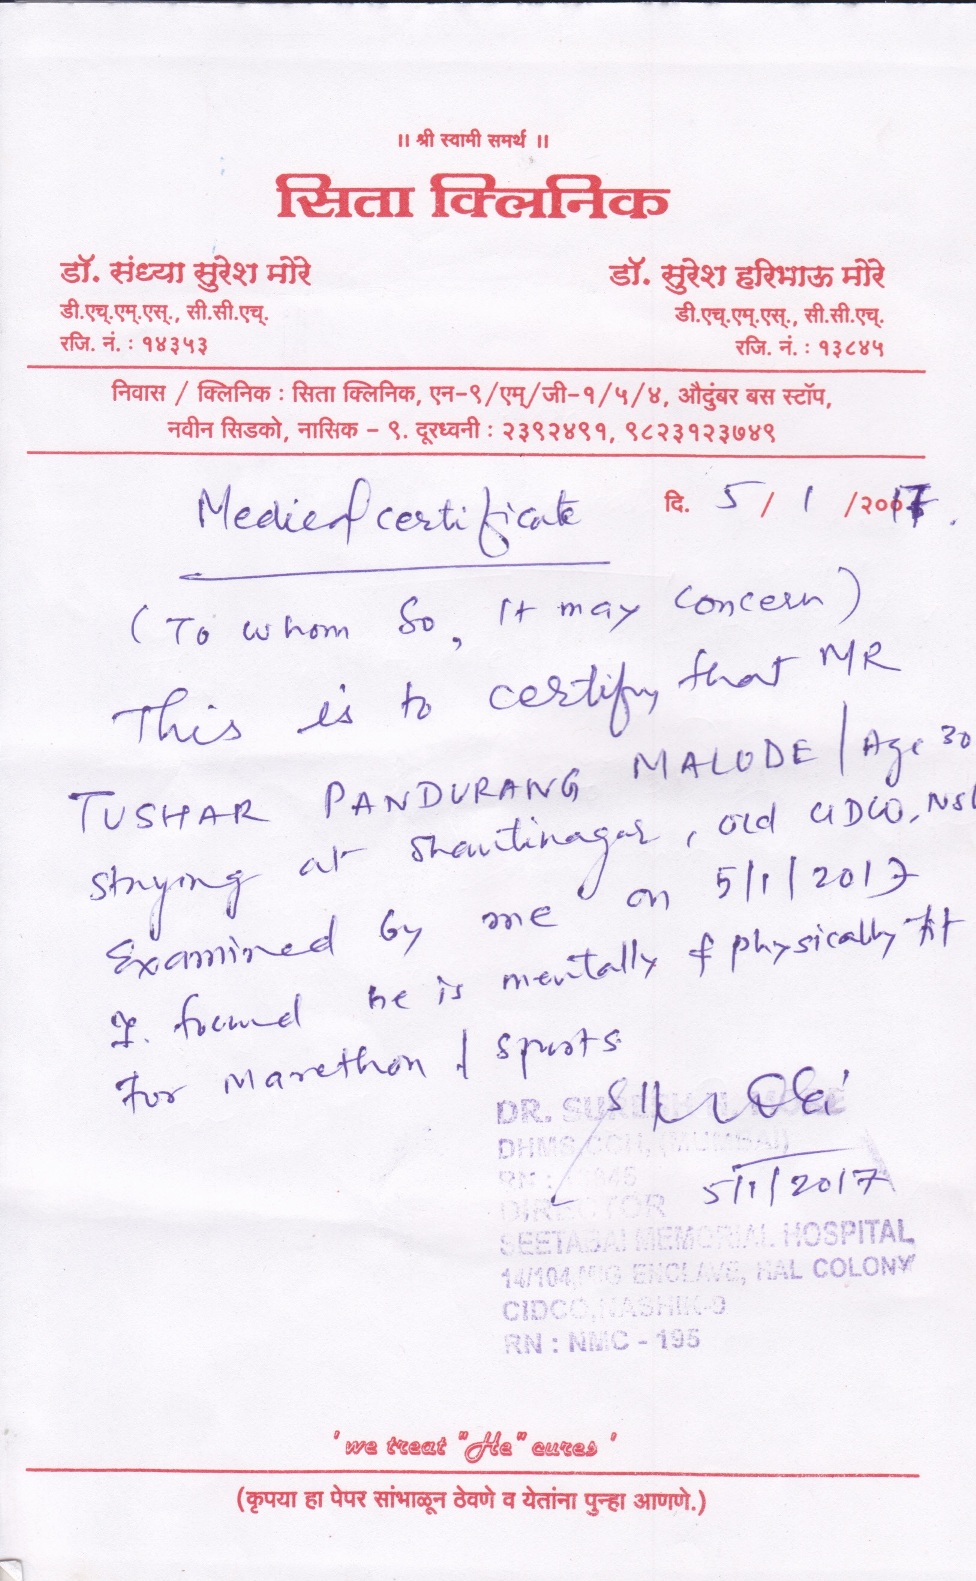 ।। श्री स्वामी समर्थ ।।
सिता क्लिनिक
डॉ. संध्या सुरेश मोरे
डी.एच्.एम्.एस्., सी.सी.एच्.
रजि. नं. : १४३५३
डॉ. सुरेश हरिभाऊ मोरे
डी.एच्.एम्.एस्., सी.सी.एच्.
रजि. नं. : १३८४५
निवास / क्लिनिक : सिता क्लिनिक, एन-९/एम्/जी-१/५/४, औदुंबर बस स्टॉप,
नवीन सिडको, नासिक - ९. दूरध्वनी : २३९२४९१, ९८२३१२३७४९
दि. 5 / 1 /२०17.
Medical certificate
(To whom So, It may concern)
This is to certify that MR
TUSHAR PANDURANG MALODE / Age 30
staying at Shantinagar, old CIDCO, NSK
Examined by me on 5/1/2017
I. found he is mentally & physically fit
For Marethon & sports
5/1/2017
DR. SURESH H. MORE
DHMS CCH, (MUMBAI)
RN : 845
DIRECTOR
SEETABAI MEMORIAL HOSPITAL
14/104, MIG ENCLAVE, HAL COLONY
CIDCO, NASHIK-9
RN : NMC - 195
'we treat "He" cures '
(कृपया हा पेपर सांभाळून ठेवणे व येतांना पुन्हा आणणे.)